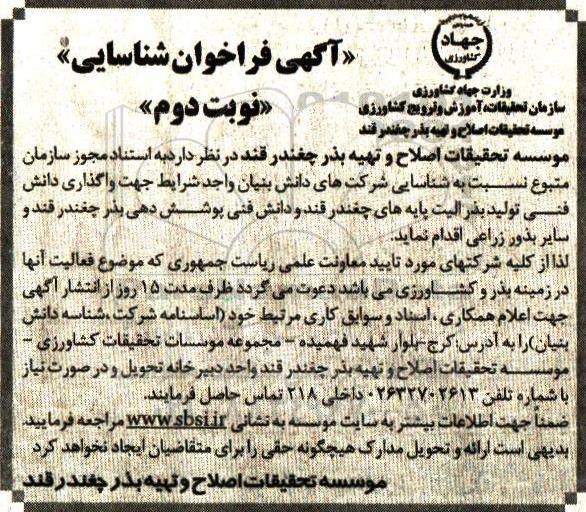 جهاد
کشاورزی
وزارت جهاد کشاورزی
سازمان تحقیقات، آموزش و ترویج کشاورزی
موسسه تحقیقات اصلاح و تهیه بذر چغندر قند
«آگهی فراخوان شناسایی»
«نوبت دوم»
موسسه تحقیقات اصلاح و تهیه بذر چغندر قند در نظر دارد به استناد مجوز سازمان
متبوع نسبت به شناسایی شرکت های دانش بنیان واجد شرایط جهت واگذاری دانش
فنی تولید بذر الیت پایه های چغندر قند و دانش فنی پوشش دهی بذر چغندر قند و
سایر بذور زراعی اقدام نماید.
لذا از کلیه شرکتهای مورد تایید معاونت علمی ریاست جمهوری که موضوع فعالیت آنها
در زمینه بذر و کشاورزی می باشد دعوت می گردد ظرف مدت ۱۵ روز از انتشار آگهی
جهت اعلام همکاری ، اسناد و سوابق کاری مرتبط خود (اساسنامه شرکت ،شناسه دانش
بنیان)را به آدرس:کرج-بلوار شهید فهمیده - مجموعه موسسات تحقیقات کشاورزی -
موسسه تحقیقات اصلاح و تهیه بذر چغندر قند واحد دبیرخانه تحویل و در صورت نیاز
با شماره تلفن ۰۲۶۳۲۷۰۲۶۱۳ داخلی ۲۱۸ تماس حاصل فرمایند.
ضمناً جهت اطلاعات بیشتر به سایت موسسه به نشانی www.sbsi.ir مراجعه فرمایید.
بدیهی است ارائه و تحویل مدارک هیچگونه حقی را برای متقاضیان ایجاد نخواهد کرد
موسسه تحقیقات اصلاح و تهیه بذر چغندر قند